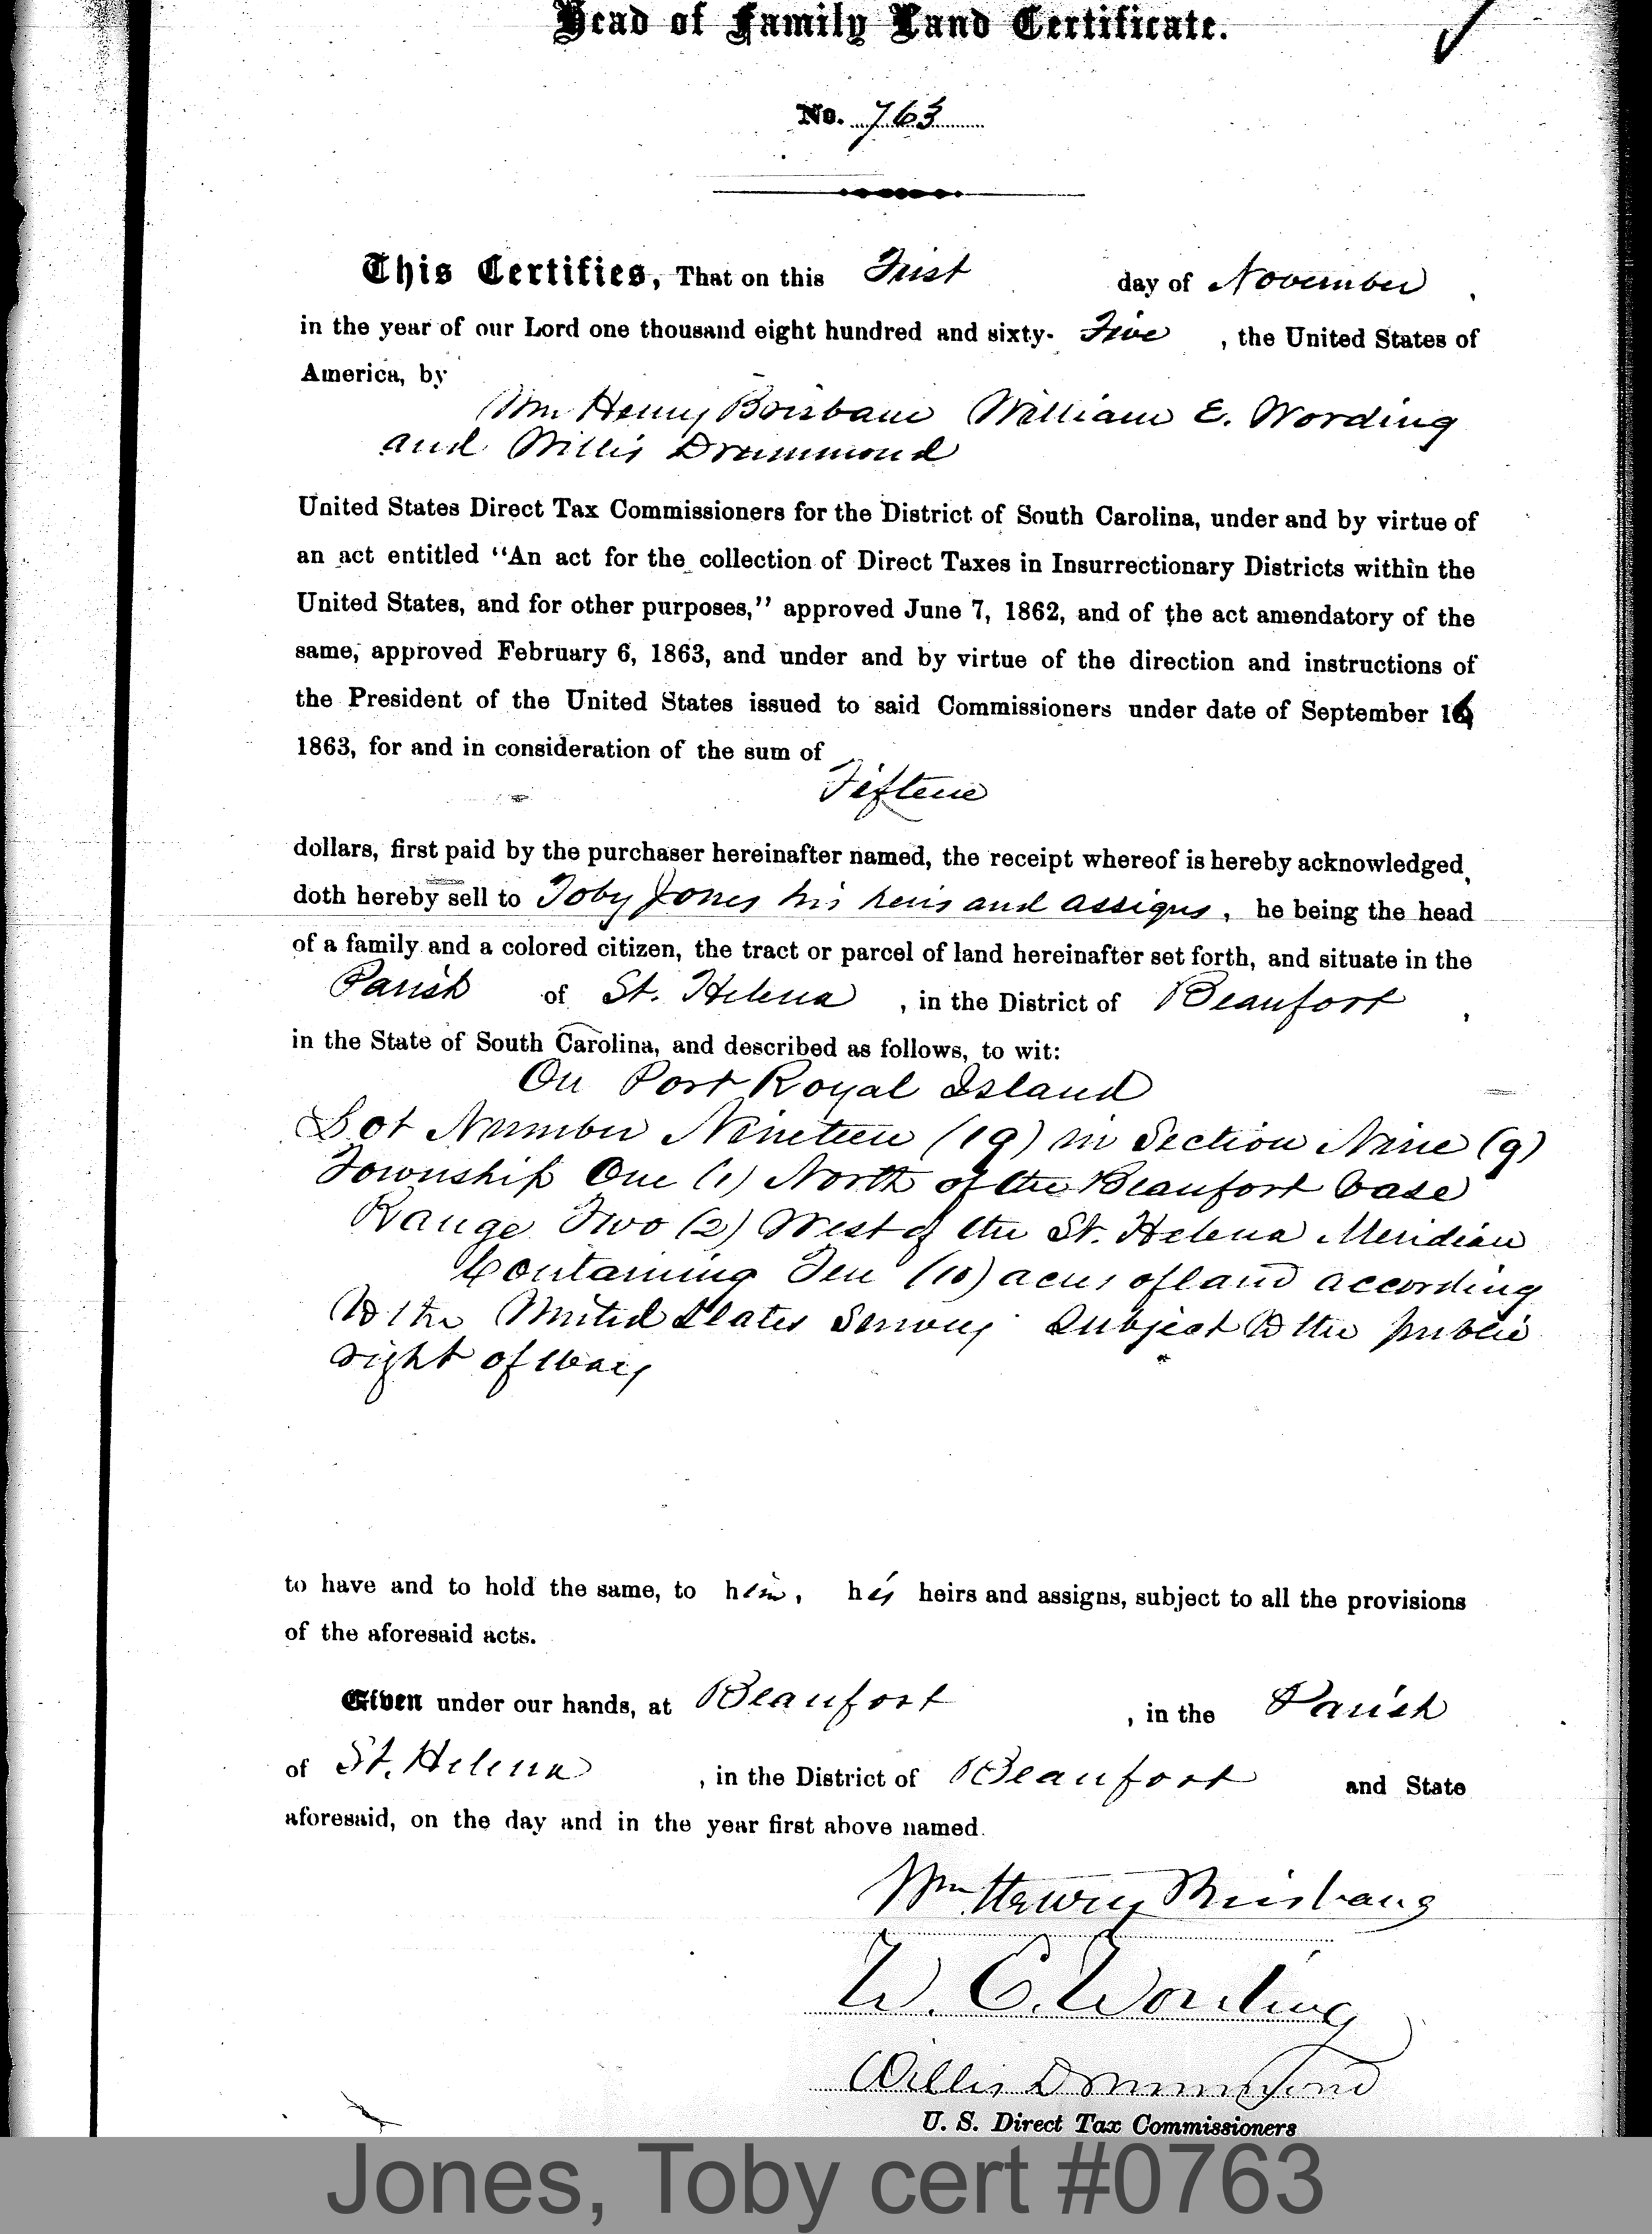 Head of Family Land Certificate.
No. 763
This Certifies, That on this First day of November,
in the year of our Lord one thousand eight hundred and sixty-Five, the United States of
America, by
Wm Henry Brisbane William E. Wording
and Willis Drummond
United States Direct Tax Commissioners for the District of South Carolina, under and by virtue of
an act entitled "An act for the collection of Direct Taxes in Insurrectionary Districts within the
United States, and for other purposes," approved June 7, 1862, and of the act amendatory of the
same, approved February 6, 1863, and under and by virtue of the direction and instructions of
the President of the United States issued to said Commissioners under date of September 16
1863, for and in consideration of the sum of
Fifteen
dollars, first paid by the purchaser hereinafter named, the receipt whereof is hereby acknowledged,
doth hereby sell to Toby Jones his heirs and assigns, he being the head
of a family and a colored citizen, the tract or parcel of land hereinafter set forth, and situate in the
Parish of St. Helena, in the District of Beaufort,
in the State of South Carolina, and described as follows, to wit:
On Port Royal Island
Lot Number Nineteen (19) in Section Nine (9)
Township One (1) North of the Beaufort base
Range Two (2) West of the St. Helena Meridian
Containing Ten (10) acres of land according
to the United States Survey Subject to the public
right of way
to have and to hold the same, to him, his heirs and assigns, subject to all the provisions
of the aforesaid acts.
Given under our hands, at Beaufort, in the Parish
of St. Helena, in the District of Beaufort and State
aforesaid, on the day and in the year first above named.
Wm Henry Brisbane
W. E. Wording
Willis Drummond
U. S. Direct Tax Commissioners
Jones, Toby cert #0763